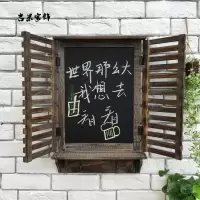 吉米家饰
世界那么大
我想去
看看